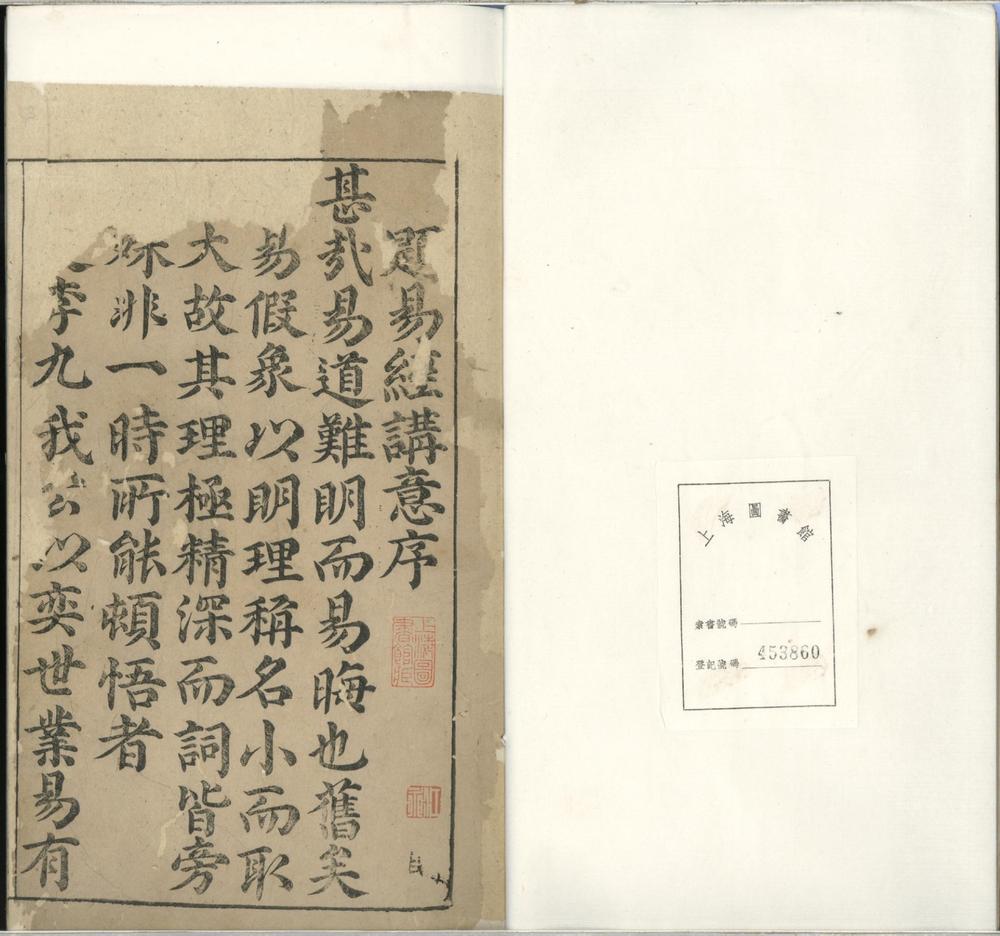 上海圖書館
索書號碼
登記號碼 453860
題易經講意序
上海圖書館藏
甚哉易道難明而易晦也舊矣
易假象以明理稱名小而取
大故其理極精深而詞皆旁
非一時所能頓悟者
李九我公以奕世業易有